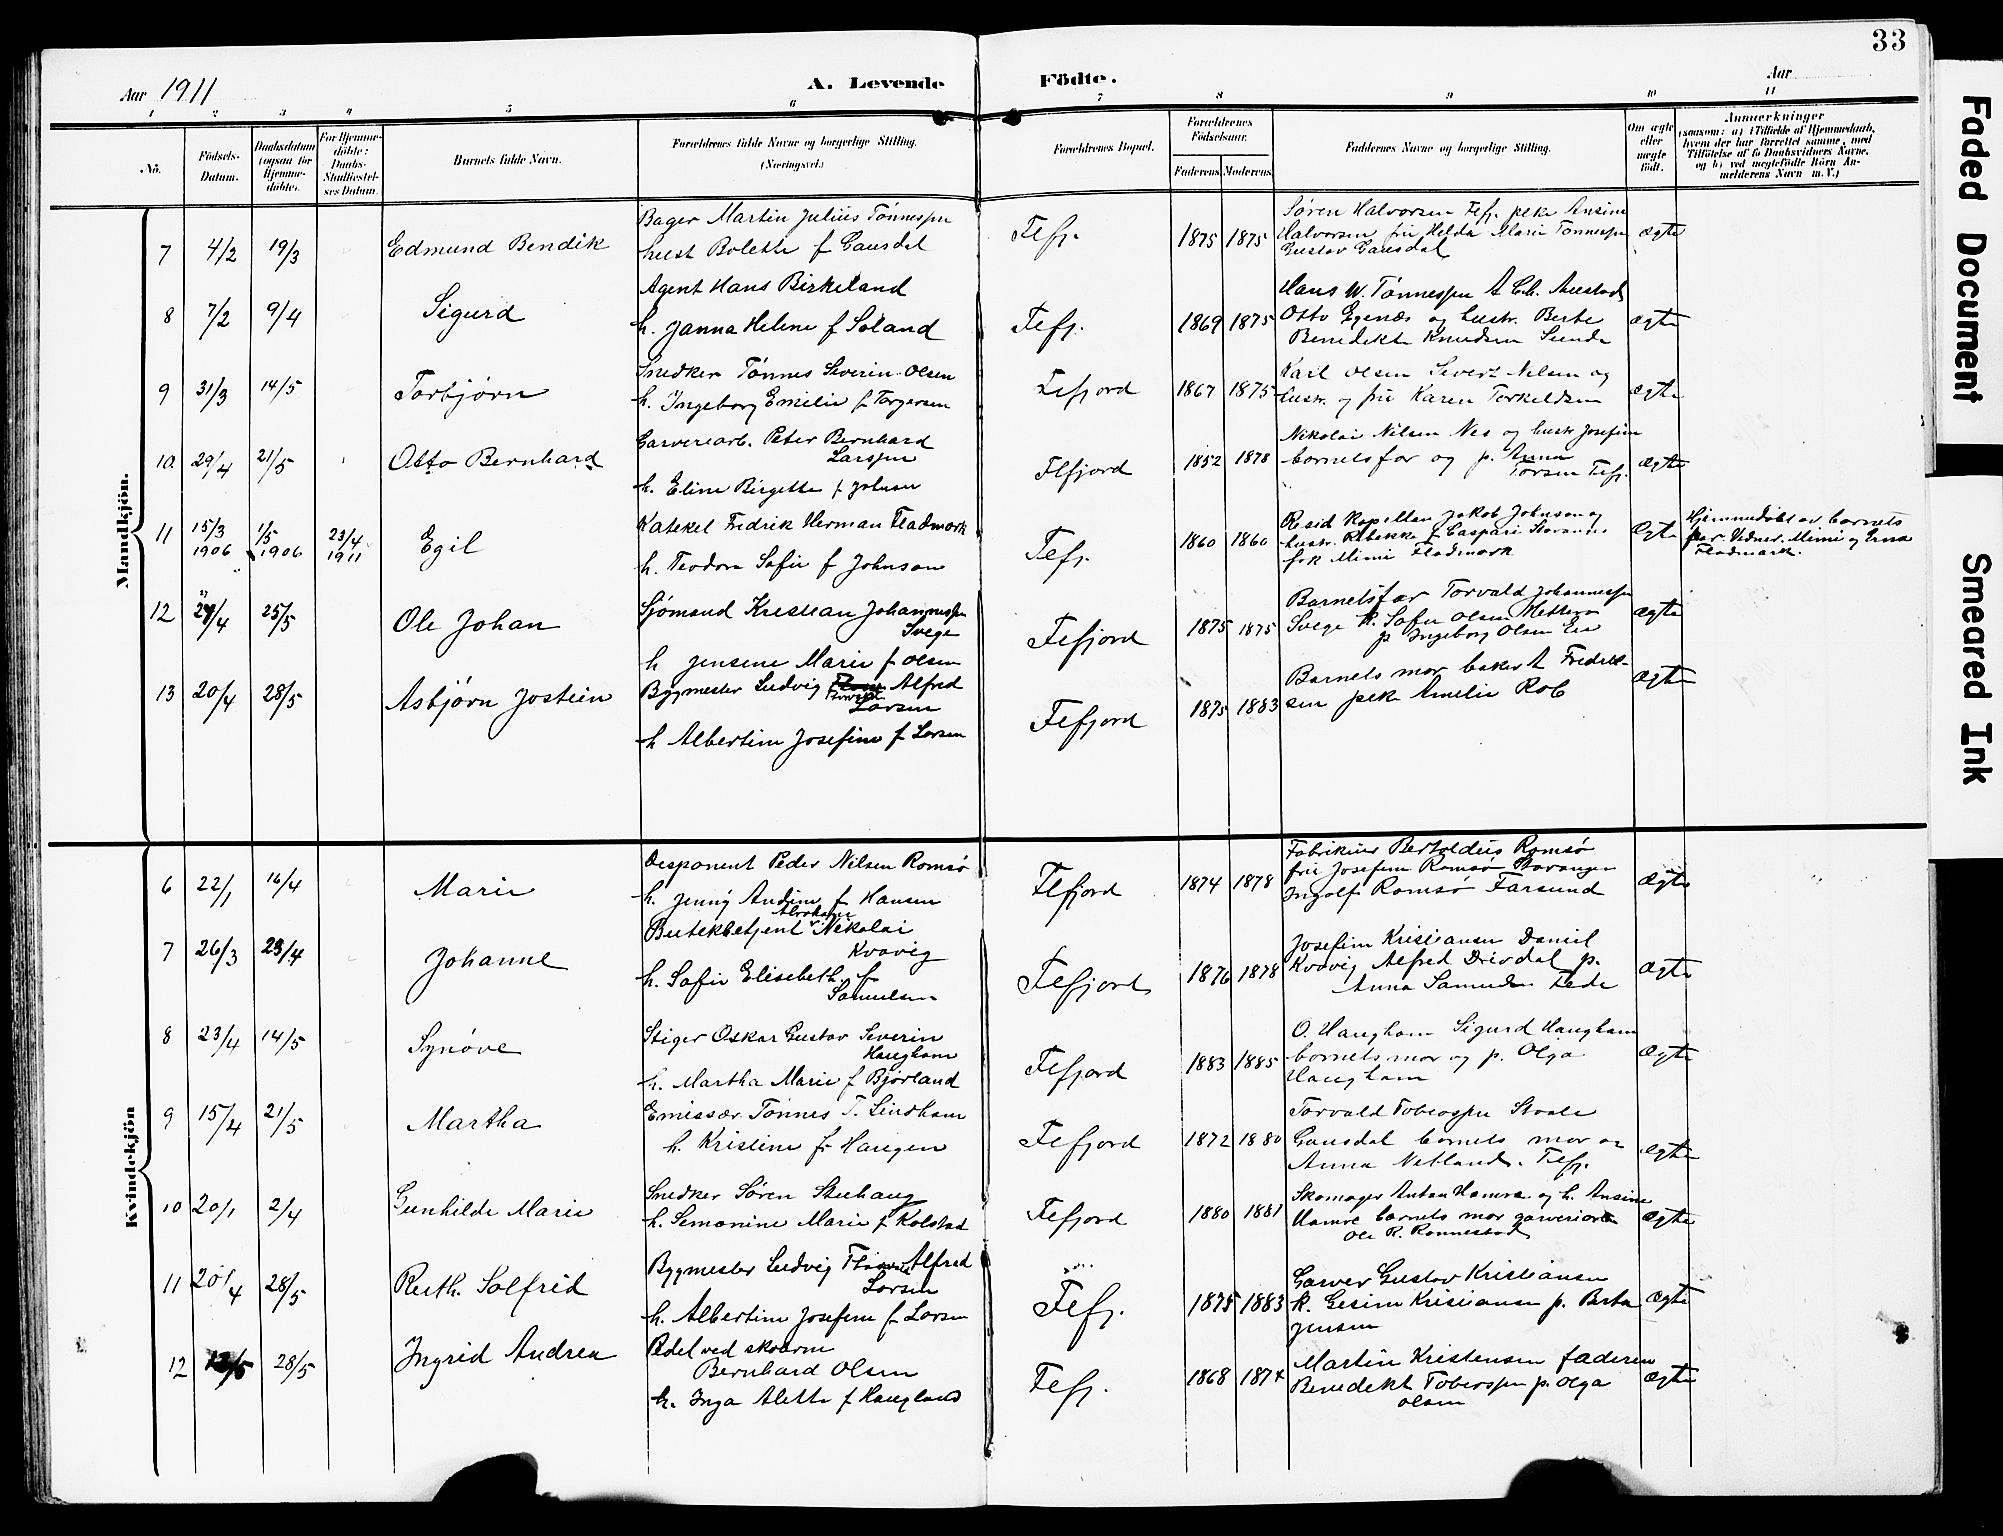 33
Aar 1911
A. Levende Födte.
Aar
1 2 3 4 5 6 7 8 9 10 11
No.
Födsels-Datum.
Daabsdatum (ogsaa for Hjemme-döbte).
For Hjemme-döbte: Daabs-Stadfæstel-ses Datum.
Barnets fulde Navn.
Forældrenes fulde Navne og borgerlige Stilling. (Næringsvei.)
Forældrenes Bopæl.
Forældrenes Födselsaar.
Faderens. Moderens.
Faddernes Navne og borgerlige Stilling.
Om ægte eller uægte födt.
Anmærkninger
(saasom: a) i Tilfælde af Hjemmedaab, hvem der har forrettet samme, med Tilföielse af to Daabsvidners Navne, og b) ved uægtefödte Börn An-melderens Navn m. V.)
Mandkjön.
7 4/2 19/3 Edmund Bendik
Bager Martin Julius Tønnespn
hust Bolette f Gausdal
Fefj. 1875 1875
Søren Halvorsen Fefj. peke Ansine
Halvorsen fru Helda Marie Tønnespn
Gustav Gausdal
ægte
8 7/2 9/4 Sigurd
Agent Hans Birkeland
h. Janna Helene f Søland
Fefj. 1869 1875
Hans W. Tønnespn A Ch. Austad
Otto Egenæs og hustr. Berte
Benedikte Knudsen Sunde
ægte
9 31/3 14/5 Torbjørn
Snedker Tønnes Severin Olsen
h. Ingeborg Emilie f Torgersen
Fefjord 1867 1875
Karl Olsen Sivert Nilsen og
hustr. og fru Karen Torkeldsen
ægte
10 29/4 21/5 Otto Bernhard
Garverearb. Peter Bernhard
Larspn
h. Eline Birgette f Johnsen
Flefjord 1852 1878
Nikolai Nilsen Nes og hustr Josefine
barnetsfar og p. Anna
Torsen Fefj.
ægte
11 15/3 1906 1/5 1906 23/4 1911 Egil
Kateket Fredrik Herman Fladmark
h. Teodora Sofie f Johnson
Fefj. 1860 1860
Resid Kapellan Jakob Johnson og
hustr. Rebekka f Caspari Stavanger
frk Mimi Fladmark
Ægte
Hjemmedøbt av barnets
far Vidner. Mimi og Erna
Fladmark.
12 24/4 25/5 Ole Johan
Sjømand Kristian Johannespn
Svege
h Jensene Marie f Olsen
Fefjord 1875 1875
Barnetsfar Torvald Johannespn
Svege k. Sofie Olsen
p Ingeborg Olsen
ægte
13 20/4 28/5 Asbjørn Jostein
Bygmester Ludvig Alfred
Larsen
h Albertine Josefine f Larsen
Fefjord 1875 1883
Barnets mor baker A Fredrik-
sen pek Amelie Rob
ægte
Kvindekjön
6 22/1 16/4 Marie
Disponent Peder Nilsen Romsø
h. Jenny Andine f Hansen
Flefjord 1874 1878
Fabrikør Bertoldus Romsø
fru Josefine Romsø Stavanger
Ingolf Romsø Farsund
ægte
7 26/3 23/4 Johanne
Abraham
Butekbetjent Nikolai
Kvavig
h. Sofie Elisebeth f
Samuelsen
Fefjord 1876 1878
Josefine Kristiansen Daniel
Kvavig Alfred Drivdal p.
Anna Samuelsen Fede
ægte
8 23/4 14/5 Synøve
Stiger Oskar Gustav Severin
Haugham
h. Martha Marie f Bjørland
Fefjord 1883 1885
O. Haugham Sigurd Haugham
barnets mor og p. Olga
Haugham
ægte
9 15/4 21/5 Martha
Emissær Tønnes T. Lindham
h. Kristine f Haugen
Fefjord 1872 1880
Torvald Tobiaspn Staale
Gausdal barnets mor og
Anna Netland. Fefj.
ægte
10 20/1 2/4 Gunhilde Marie
Snedker Søren Stuhaug
h. Semonine Marie f Kolstad
Fefjord 1880 1881
Skomager Anton Hamre og h. Ansine
Hamre barnets mor garveriarb
Ole R. Ronnestad
ægte
11 20/4 28/5 Ruth. Solfrid
Bygmester Ludvig Alfred
Larsen
h. Albertine Josefine f Larsen
Fefj. 1875 1883
Garver Gustav Kristiansen
k. Gesine Kristiansen p. Berta
Jensen
ægte
12 28/5 Ingrid Andrea
Pedel ved skolerne
Bernhard Olsen
h. Inga Alette f Haugland
Fefj. 1868 1874
Martin Kristensen faderen
Benedikt Tobiaspn p. Olga
Olsen
ægte
Faded Document
Smeared Ink